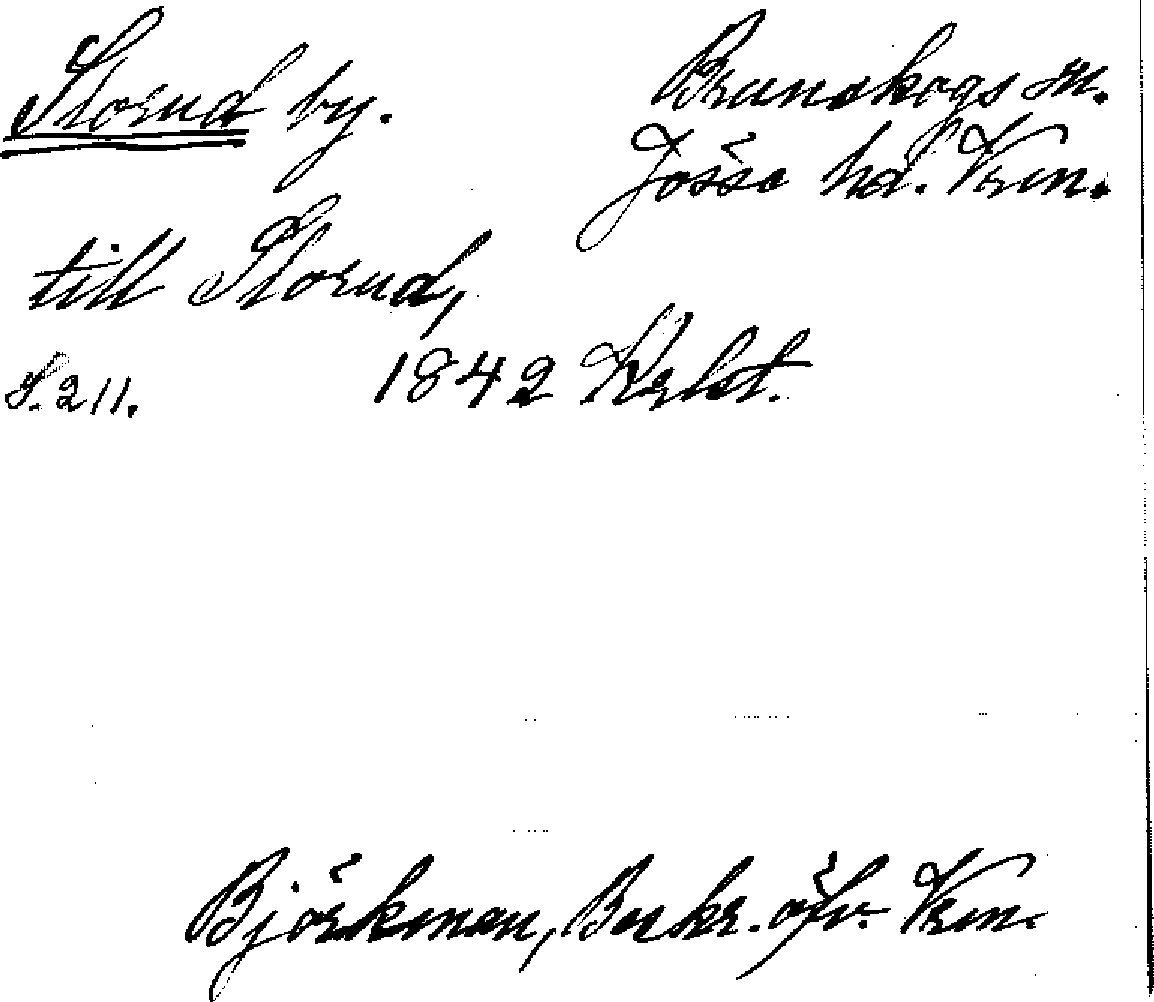 Storud by.
Brunskogs sn.
Jösse hd. Vrm.
till Storud,
S. 211.
1842 Krlst.
Björkman, Beskr. öfv. Vrm.